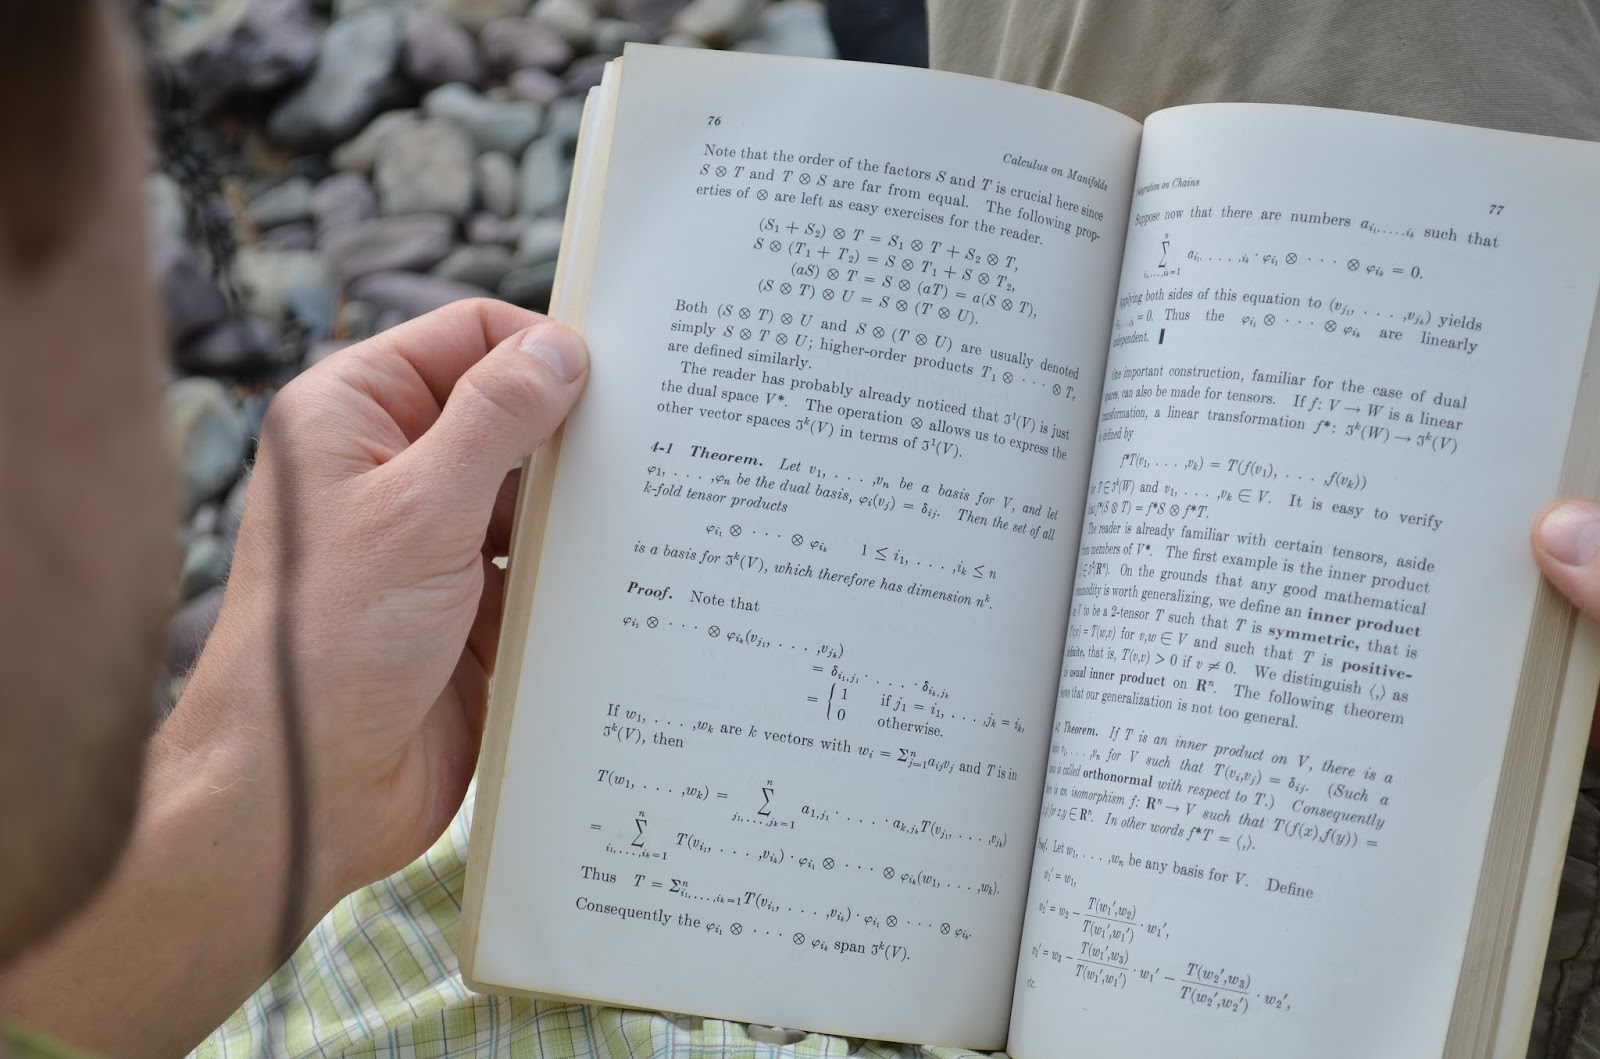 76
Calculus on Manifolds
Note that the order of the factors S and T is crucial here since
S ⊗ T and T ⊗ S are far from equal. The following prop-
erties of ⊗ are left as easy exercises for the reader.
(S₁ + S₂) ⊗ T = S₁ ⊗ T + S₂ ⊗ T,
S ⊗ (T₁ + T₂) = S ⊗ T₁ + S ⊗ T₂,
(aS) ⊗ T = S ⊗ (aT) = a(S ⊗ T),
(S ⊗ T) ⊗ U = S ⊗ (T ⊗ U).
Both (S ⊗ T) ⊗ U and S ⊗ (T ⊗ U) are usually denoted
simply S ⊗ T ⊗ U; higher-order products T₁ ⊗ · · · ⊗ Tᵣ
are defined similarly.
The reader has probably already noticed that 𝔍¹(V) is just
the dual space V*. The operation ⊗ allows us to express the
other vector spaces 𝔍ᵏ(V) in terms of 𝔍¹(V).
4-1 Theorem. Let v₁, . . . ,vₙ be a basis for V, and let
φ₁, . . . ,φₙ be the dual basis, φᵢ(vⱼ) = δᵢⱼ. Then the set of all
k-fold tensor products
φ_{i₁} ⊗ · · · ⊗ φ_{iₖ} 1 ≤ i₁, . . . ,iₖ ≤ n
is a basis for 𝔍ᵏ(V), which therefore has dimension nᵏ.
Proof. Note that
φ_{i₁} ⊗ · · · ⊗ φ_{iₖ}(v_{j₁}, . . . ,v_{jₖ})
= δ_{i₁,j₁} · . . . · δ_{iₖ,jₖ}
= { 1 if j₁ = i₁, . . . ,jₖ = iₖ,
0 otherwise.
If w₁, . . . ,wₖ are k vectors with wᵢ = Σⁿⱼ₌₁aᵢⱼvⱼ and T is in
𝔍ᵏ(V), then
T(w₁, . . . ,wₖ) = Σⁿ_{j₁,...,jₖ=1} a_{1,j₁} · . . . · a_{k,jₖ}T(v_{j₁}, . . . ,v_{jₖ})
= Σⁿ_{i₁,...,iₖ=1} T(v_{i₁}, . . . ,v_{iₖ}) · φ_{i₁} ⊗ · · · ⊗ φ_{iₖ}(w₁, . . . ,wₖ).
Thus T = Σⁿ_{i₁,...,iₖ=1}T(v_{i₁}, . . . ,v_{iₖ}) · φ_{i₁} ⊗ · · · ⊗ φ_{iₖ}.
Consequently the φ_{i₁} ⊗ · · · ⊗ φ_{iₖ} span 𝔍ᵏ(V).
on Chains
77
Suppose now that there are numbers a_{i₁,...,iₖ} such that
Σⁿ_{i₁,...,iₖ=1} a_{i₁,...,iₖ} · φ_{i₁} ⊗ · · · ⊗ φ_{iₖ} = 0.
Applying both sides of this equation to (v_{j₁}, . . . ,v_{jₖ}) yields
= 0. Thus the φ_{i₁} ⊗ · · · ⊗ φ_{iₖ} are linearly
independent. ▌
One important construction, familiar for the case of dual
spaces, can also be made for tensors. If f: V → W is a linear
transformation, a linear transformation f*: 𝔍ᵏ(W) → 𝔍ᵏ(V)
is defined by
f*T(v₁, . . . ,vₖ) = T(f(v₁), . . . ,f(vₖ))
T ∈ 𝔍ᵏ(W) and v₁, . . . ,vₖ ∈ V. It is easy to verify
f*(S ⊗ T) = f*S ⊗ f*T.
The reader is already familiar with certain tensors, aside
members of V*. The first example is the inner product
∈ 𝔍²(Rⁿ). On the grounds that any good mathematical
commodity is worth generalizing, we define an inner product
V to be a 2-tensor T such that T is symmetric, that is
= T(w,v) for v,w ∈ V and such that T is positive-
definite, that is, T(v,v) > 0 if v ≠ 0. We distinguish ⟨,⟩ as
usual inner product on Rⁿ. The following theorem
that our generalization is not too general.
Theorem. If T is an inner product on V, there is a
v₁, . . . ,vₙ for V such that T(vᵢ,vⱼ) = δᵢⱼ. (Such a
is called orthonormal with respect to T.) Consequently
is an isomorphism f: Rⁿ → V such that T(f(x),f(y)) =
for x,y ∈ Rⁿ. In other words f*T = ⟨,⟩.
Proof. Let w₁, . . . ,wₙ be any basis for V. Define
= w₁,
= w₂ − T(w₁′,w₂)/T(w₁′,w₁′) · w₁′,
= w₃ − T(w₁′,w₃)/T(w₁′,w₁′) · w₁′ − T(w₂′,w₃)/T(w₂′,w₂′) · w₂′,
etc.